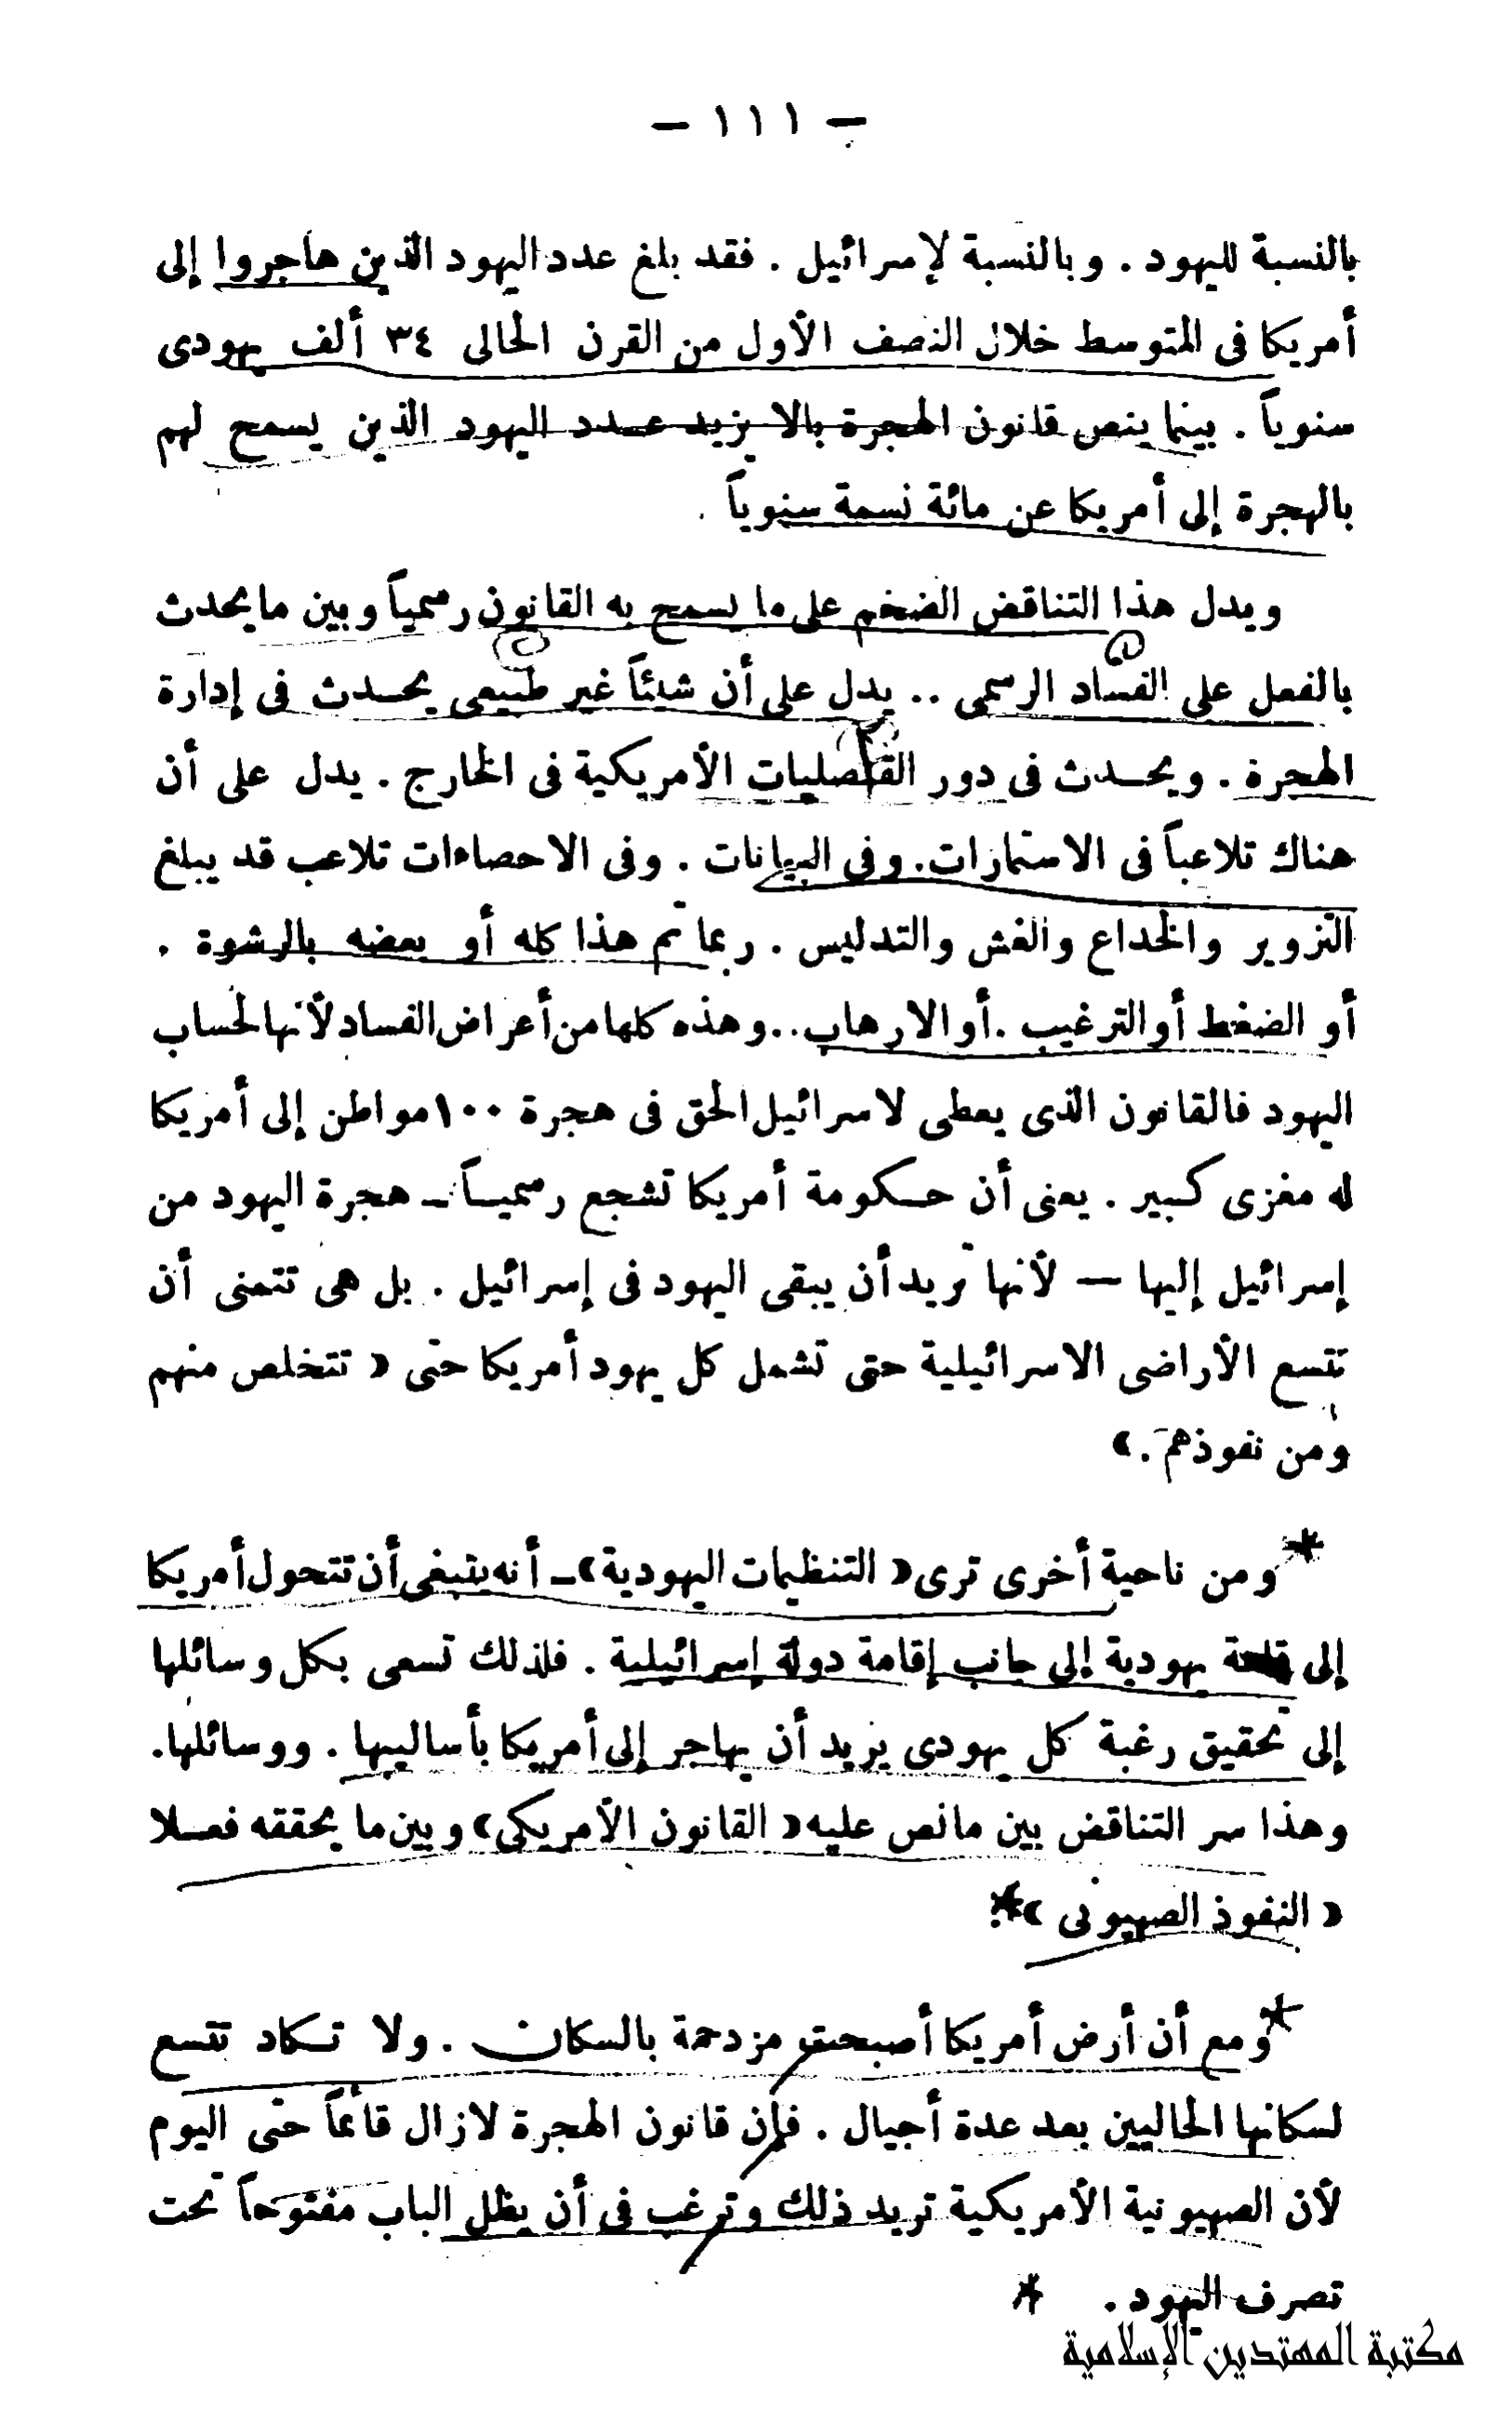 — ١١١ —
بالنسبة لليهود . وبالنسبة لإسرائيل . فقد بلغ عدد اليهود الذين هاجروا إلى
أمريكا فى المتوسط خلال النصف الأول من القرن الحالى ٣٤ ألف يهودى
سنوياً . بينما ينص قانون الهجرة بالا يزيد عدد اليهود الذين يسمح لهم
بالهجرة إلى أمريكا عن مائة نسمة سنوياً .
ويدل هذا التناقض الضخم على ما يسمح به القانون رسمياً وبين ما يحدث
بالفعل على الفساد الرسمى .. يدل على أن شيئاً غير طبيعى يحدث فى إدارة
الهجرة . ويحدث فى دور القنصليات الأمريكية فى الخارج . يدل على أن
هناك تلاعباً فى الاستمارات . وفى البيانات . وفى الاحصاءات تلاعب قد يبلغ
التزوير والخداع والغش والتدليس . ربما تم هذا كله أو بعضه بالرشوة .
أو الضغط أو الترغيب . أو الارهاب .. وهذه كلها من أعراض الفساد لأنها لحساب
اليهود فالقانون الذى يعطى لاسرائيل الحق فى هجرة ١٠٠ مواطن إلى أمريكا
له مغزى كبير . يعنى أن حكومة أمريكا تشجع رسمياً – هجرة اليهود من
إسرائيل إليها – لأنها تريد أن يبقى اليهود فى إسرائيل . بل هى تتمنى أن
تتسع الأراضى الاسرائيلية حتى تشمل كل يهود أمريكا حتى « تتخلص منهم
ومن نفوذهم . »
* ومن ناحية أخرى ترى « التنظيمات اليهودية » – أنه ينبغى أن تتحول أمريكا
إلى قلعة يهودية إلى جانب إقامة دولة إسرائيلية . فلذلك تسعى بكل وسائلها
إلى تحقيق رغبة كل يهودى يريد أن يهاجر إلى أمريكا بأساليبها . ووسائلها .
وهذا سر التناقض بين ما نص عليه « القانون الأمريكى » وبين ما يحققه فعلا
« النفوذ الصهيونى » *
* ومع أن أرض أمريكا أصبحت مزدحمة بالسكان . ولا تكاد تتسع
لسكانها الحاليين بعد عدة أجيال . فإن قانون الهجرة لازال قائماً حتى اليوم
لأن الصهيونية الأمريكية تريد ذلك وترغب فى أن يظل الباب مفتوحاً تحت
تصرف اليهود . *
مكتبة المهتدين الإسلامية